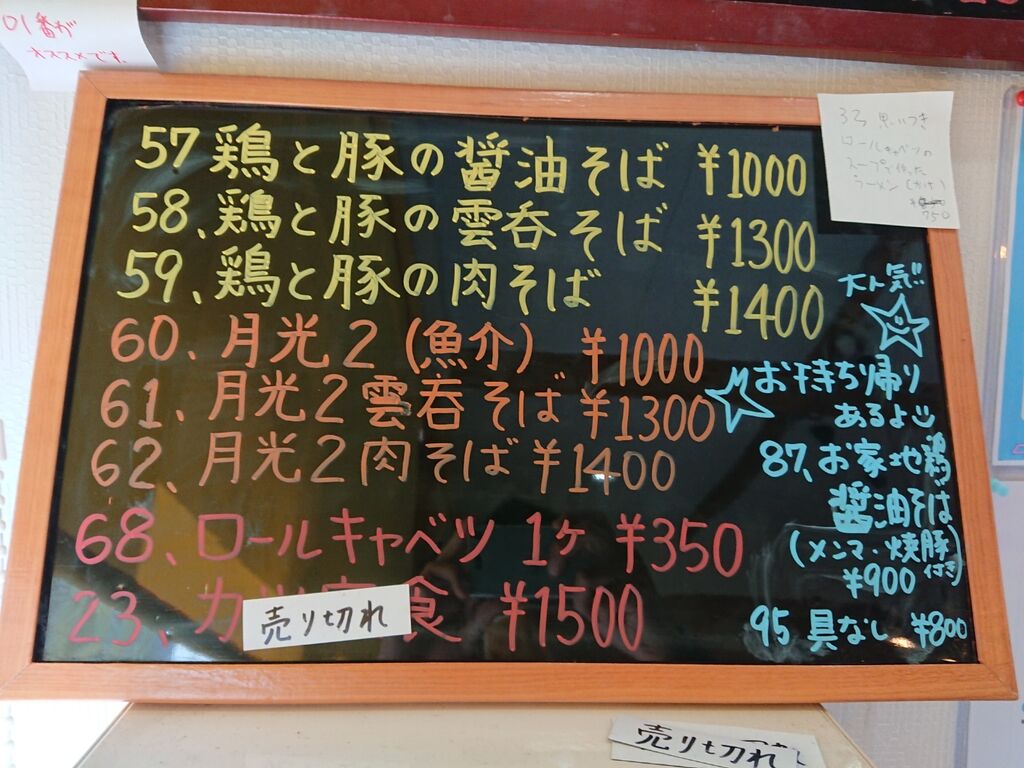 01番が
オススメです。
57 鶏と豚の醤油そば ¥1000
58、鶏と豚の雲呑そば ¥1300
59、鶏と豚の肉そば ¥1400
60、月光2(魚介) ¥1000
61、月光2雲呑そば ¥1300
62、月光2肉そば ¥1400
68、ロールキャベツ 1ヶ ¥350
23、カツ 食 ¥1500
売り切れ
33 思いつき
ロールキャベツの
スープで作った
ラーメン(かけ)
750
大人気!!
お持ち帰り
あるよ
87、お家地鶏
醤油そば
(メンマ・焼豚付き)
¥900
95 具なし ¥800
売り切れ